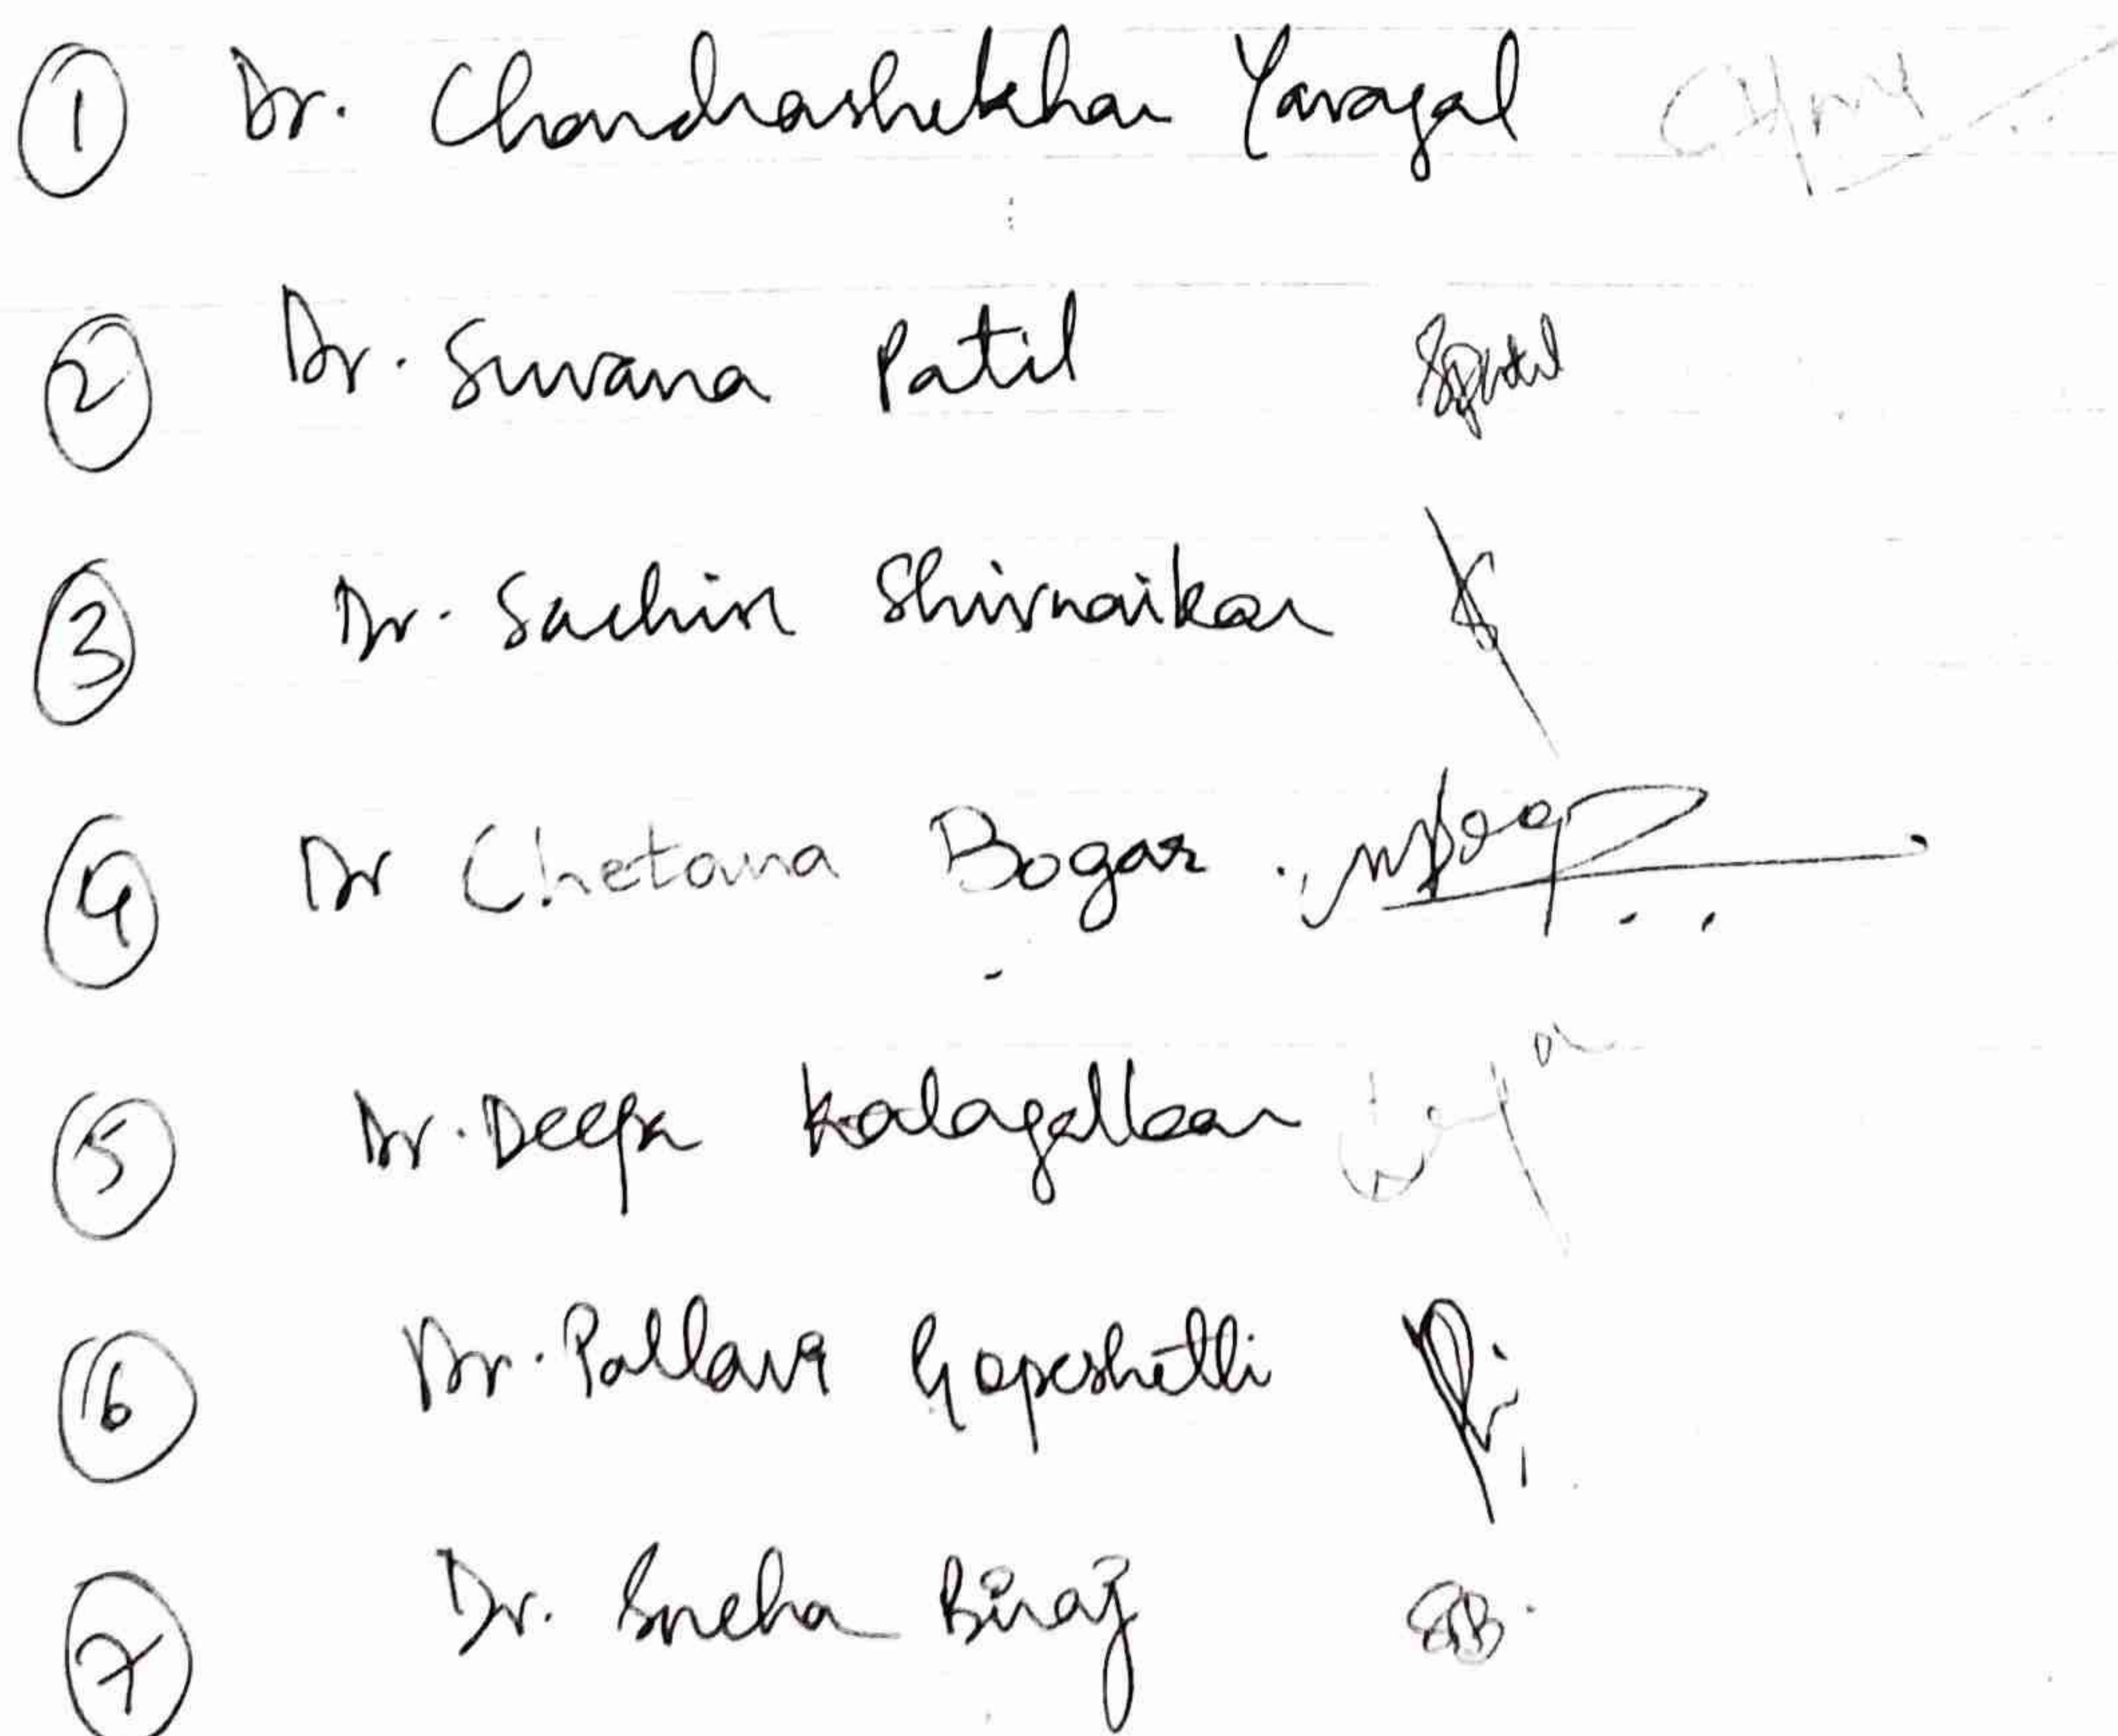 1 Dr. Chandrashekhar Yaragal
2 Dr. Suvarna Patil
3 Dr. Sachin Shivnaikar
4 Dr Chetana Bogar
5 Dr. Deepa Kalagalkar
6 Dr. Pallavi Gopeshetti
7 Dr. Sneha Biraj